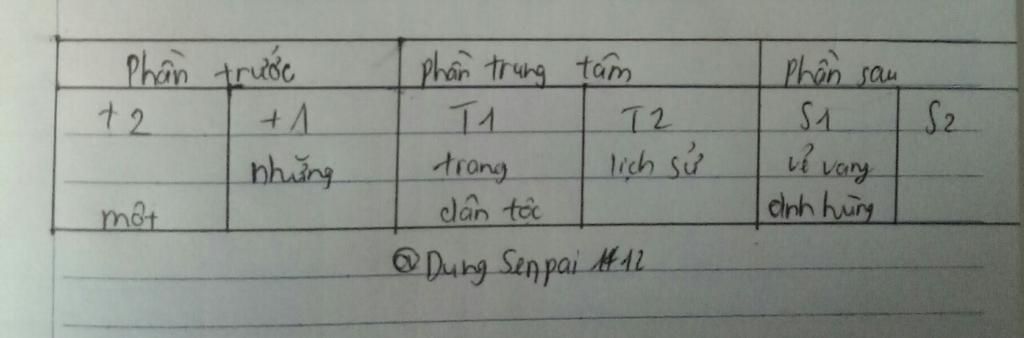 Phần trước phần trung tâm Phần sau
t2 t1 T1 T2 S1 S2
những trang lịch sử vẻ vang
một dân tộc anh hùng
@ Dung Senpai #12